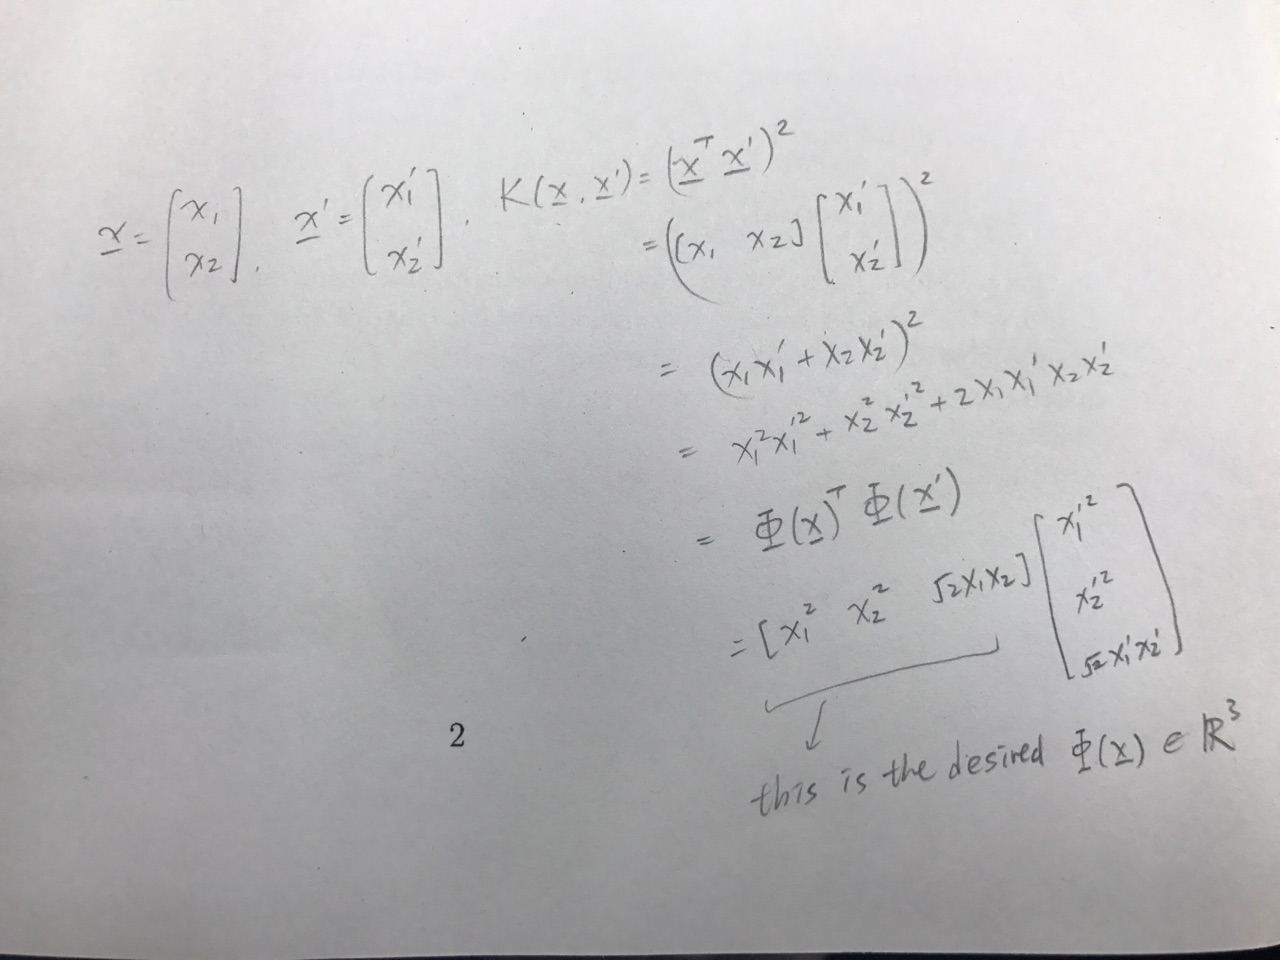 x = [x₁ x₂], x' = [x₁' x₂'], K(x, x') = (xᵀ x')²
= ([x₁ x₂] [x₁' x₂'])²
= (x₁x₁' + x₂x₂')²
= x₁²x₁'² + x₂²x₂'² + 2x₁x₁'x₂x₂'
= Φ(x)ᵀ Φ(x')
= [x₁² x₂² √2x₁x₂] [x₁'² x₂'² √2x₁'x₂']
this is the desired Φ(x) ∈ ℝ³
2